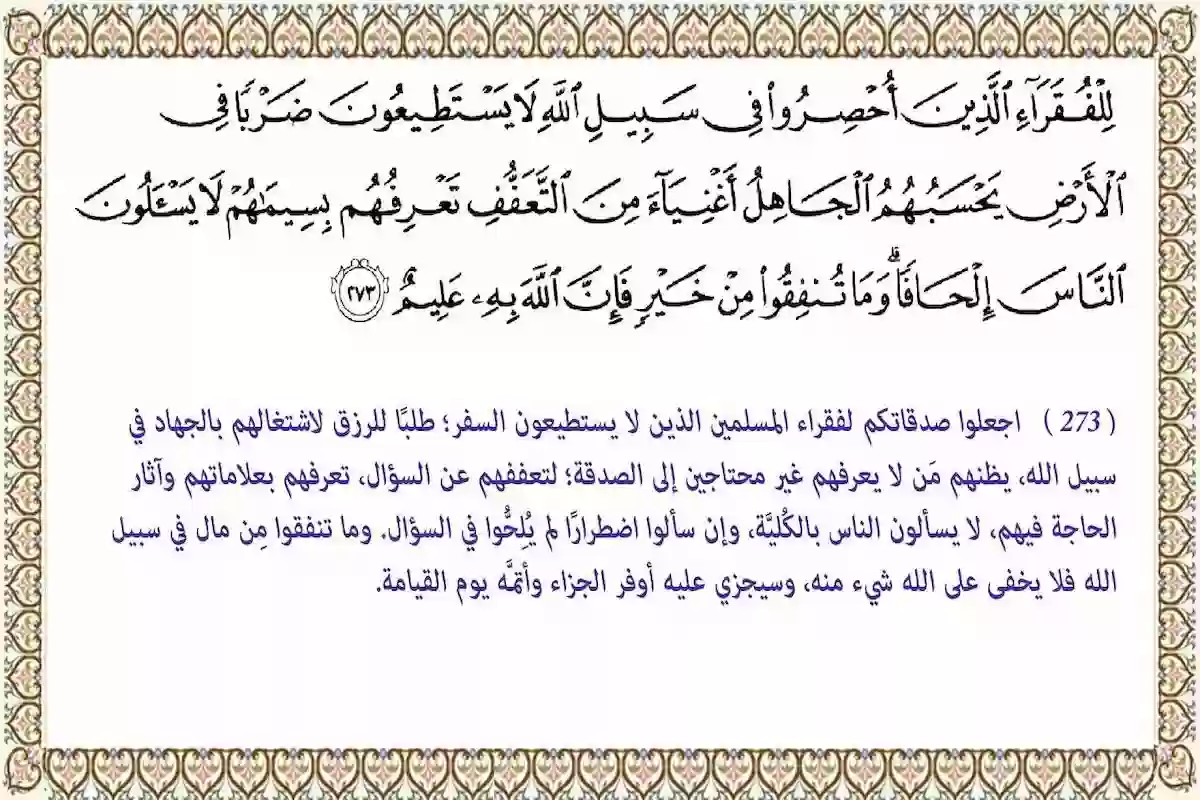 لِلْفُقَرَآءِ ٱلَّذِينَ أُحْصِرُوا۟ فِى سَبِيلِ ٱللَّهِ لَا يَسْتَطِيعُونَ ضَرْبًا فِى
ٱلْأَرْضِ يَحْسَبُهُمُ ٱلْجَاهِلُ أَغْنِيَآءَ مِنَ ٱلتَّعَفُّفِ تَعْرِفُهُم بِسِيمَٰهُمْ لَا يَسْـَٔلُونَ
ٱلنَّاسَ إِلْحَافًا ۗ وَمَا تُنفِقُوا۟ مِنْ خَيْرٍ فَإِنَّ ٱللَّهَ بِهِۦ عَلِيمٌ ٢٧٣
( 273 ) اجعلوا صدقاتكم لفقراء المسلمين الذين لا يستطيعون السفر؛ طلبًا للرزق لاشتغالهم بالجهاد في
سبيل الله، يظنهم مَن لا يعرفهم غير محتاجين إلى الصدقة؛ لتعففهم عن السؤال، تعرفهم بعلاماتهم وآثار
الحاجة فيهم، لا يسألون الناس بالكُليَّة، وإن سألوا اضطرارًا لم يُلِحُّوا في السؤال. وما تنفقوا مِن مال في سبيل
الله فلا يخفى على الله شيء منه، وسيجزي عليه أوفر الجزاء وأتمَّه يوم القيامة.